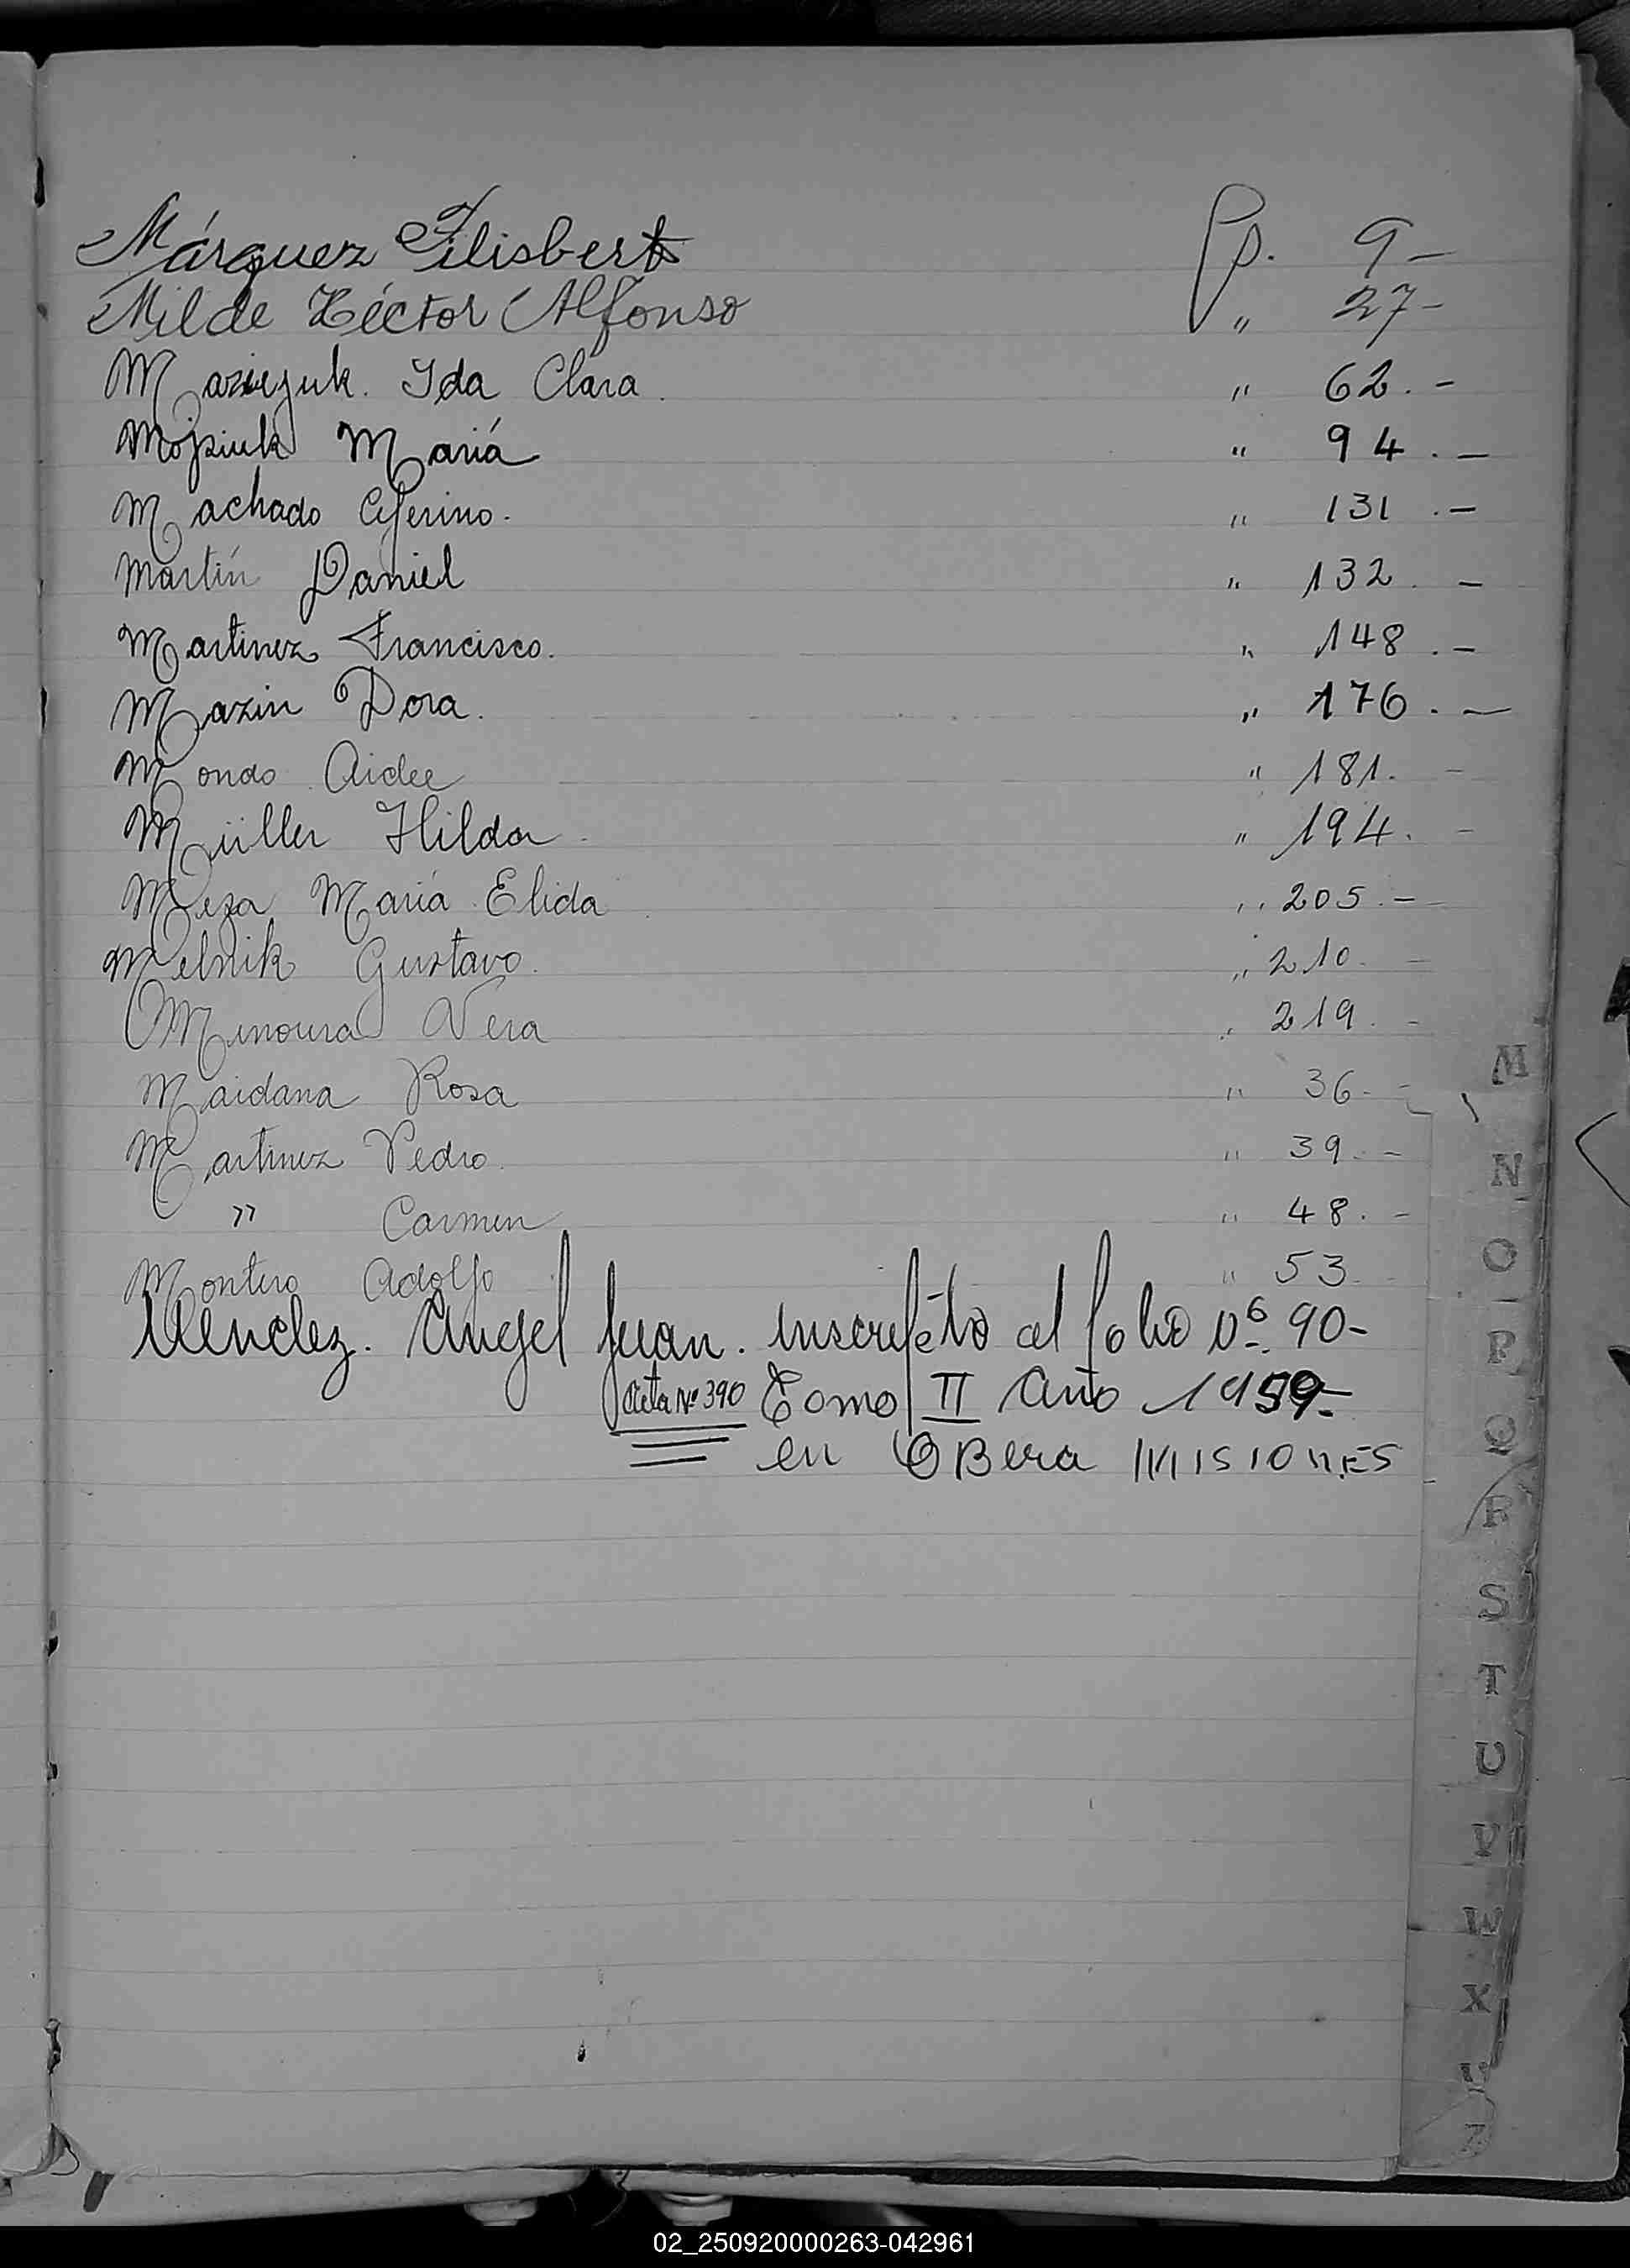 Márquez Filisberto Pp. 9-
Milde Héctor Alfonso " 27-
Ida Clara. " 62.-
María " 94.-
Machado Ceferino. " 131.-
Martín Daniel " 132.-
Martinez Francisco. " 148.-
Mazin Dora. " 176.-
Mondo Aidee " 181.-
Müller Hilda " 194.-
Meza María Elida " 205.-
Melnik Gustavo. " 210.-
Minoura Vera " 219.-
Maidana Rosa " 36.-
Martinez Pedro. " 39.-
" Carmen " 48.-
Montero Adolfo " 53.-
Mendez. Angel Juan. inscripto al folio nº 90-
Acta Nº 390 Tomo II Año 1959-
en OBera MISIONES
M
N
O
P
Q
R
S
T
U
V
W
X
Z
02_250920000263-042961